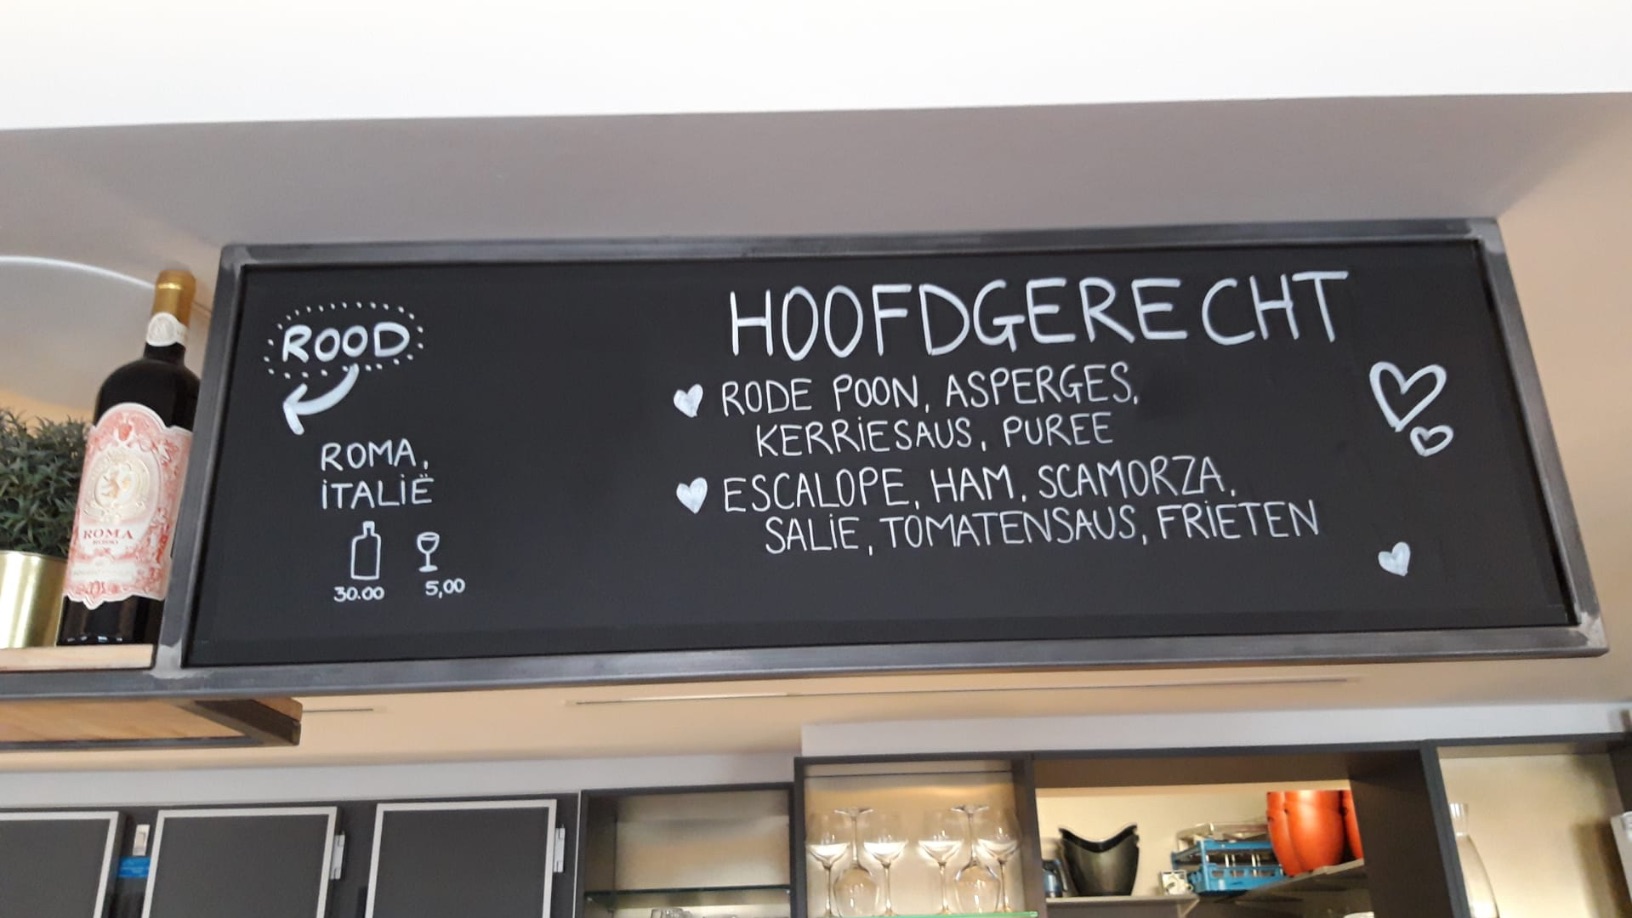 ROOD
ROMA,
ITALIË
30.00 5,00
HOOFDGERECHT
RODE POON, ASPERGES,
KERRIESAUS, PUREE
ESCALOPE, HAM, SCAMORZA,
SALIE, TOMATENSAUS, FRIETEN
ROMA